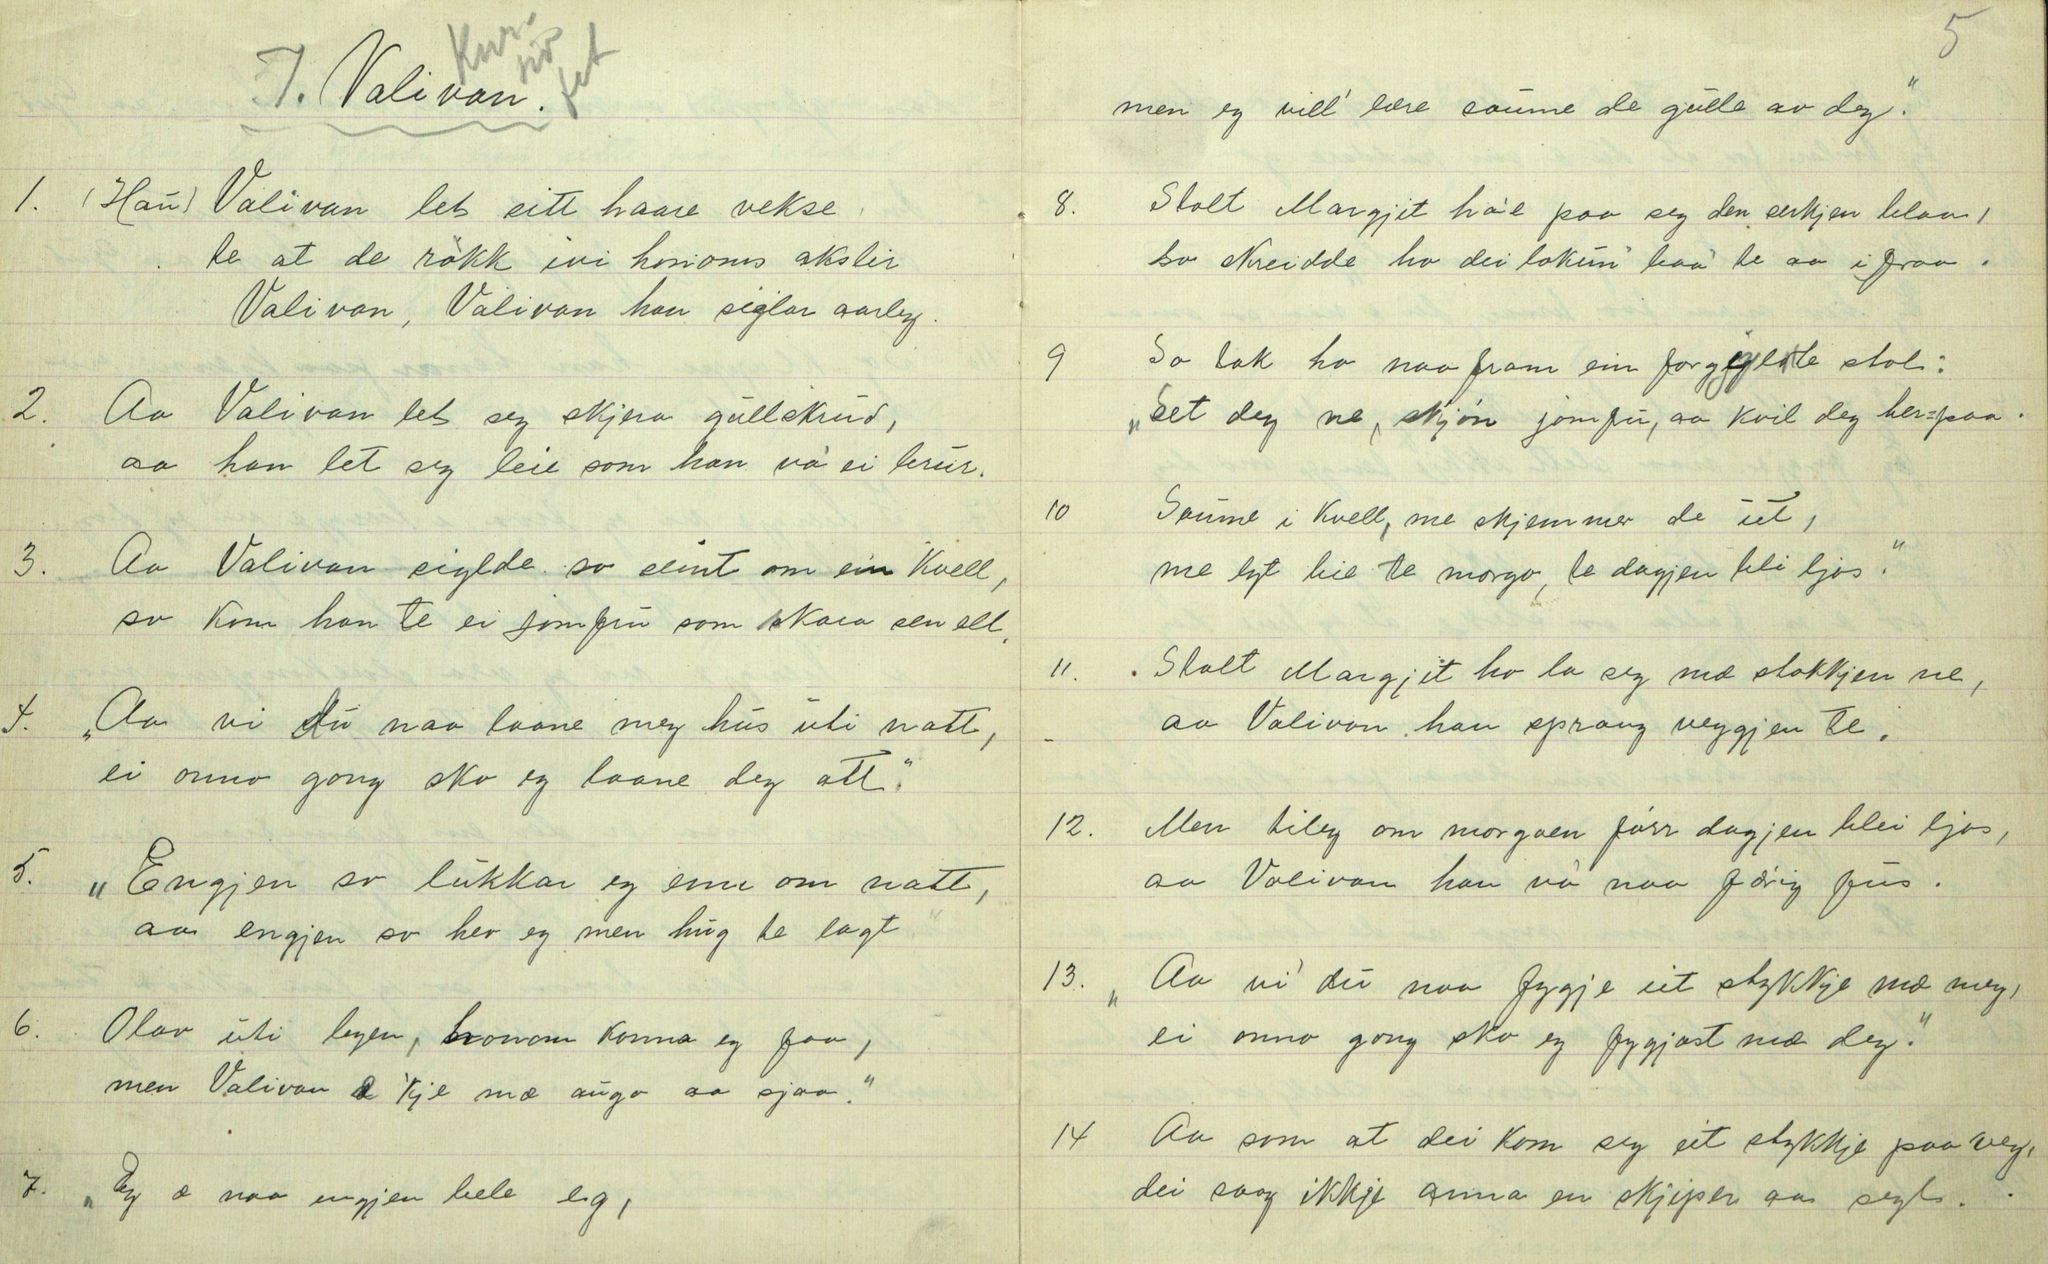 7. Valivan.
5
1. (Han) Valivan let sitt haare vekse
te at de rökk ivi honoms akslir
Valivan, Valivan han siglar aarleg.
2. Aa Valivan let seg skjera gullskrud,
aa han let seg leie som han va' ei brur.
3. Aa Valivan siglde so seint om ein kvell,
so kom han te ei jomfru som skara sen ell.
4. „Aa vi du naa laane meg hus uti natt,
ei onno gong sko eg laane deg att."
5. „Engjen so lukkar eg inn om natt,
aa engjen so hev eg men hug te lagt
6. Olav uti legen, honom konna eg faa,
men Valivan æ 'kje mæ augo aa sjaa."
7. „Eg æ naa engjen bele eg,
men eg vill' lære saume de gulle av deg."
8. Stolt Margjit ha'e paa seg den serkjen blaa,
so skreidde ho dei lakun' baa' te aa ifraa.
9 So tok ho naa fram ein forgyldte stol:
„Set deg ne, skjön jomfu, aa kvil deg her=paa.
10 Saume i kvell, me skjemmer de ut,
me lyt bie te morgo, te dagjen bli ljos."
11. Stolt Margjit ho la seg mæ stokkjen ne,
aa Valivan han sprang veggjen te.
12. Men tileg om morgoen förr dagjen blei ljos,
aa Valivan han va' naa færig fus.
13. „Aa vi' du naa fygje eit stykkje mæ meg,
ei onno gong sko eg fygjast mæ deg."
14 Aa som at dei kom seg eit stykkje paa veg,
dei saag ikkje anna en skjiper aa segl.